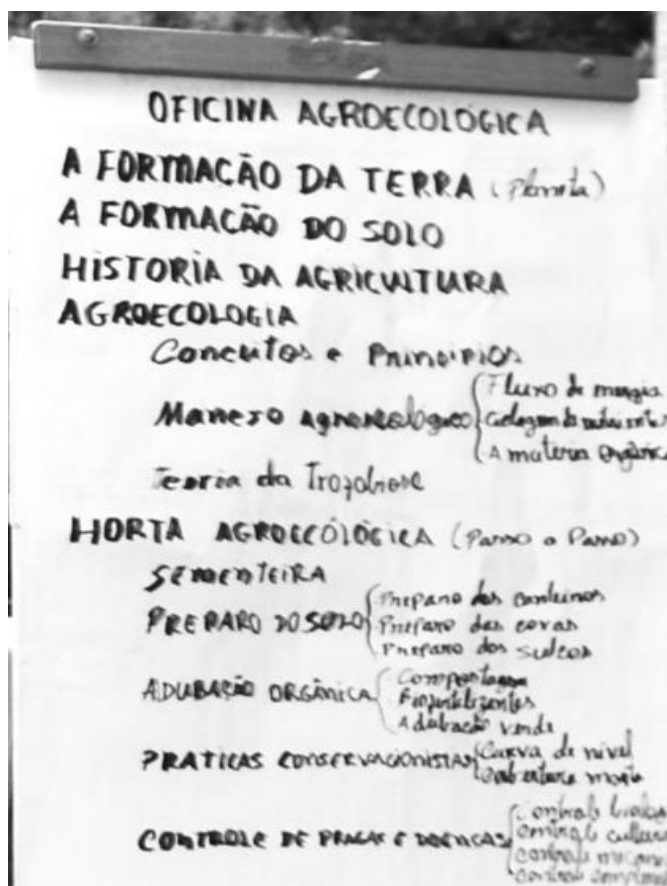 OFICINA AGROECOLÓGICA
A FORMAÇÃO DA TERRA (Planeta)
A FORMAÇÃO DO SOLO
HISTORIA DA AGRICULTURA
AGROECOLOGIA
Conceitos e Princípios
Manejo agroecológico
Fluxo de energia
Ciclagem de nutrientes
A materia orgânica
Teoria da Trofobiose
HORTA AGROECÓLÓGICA (Passo a Passo)
SEMENTEIRA
PREPARO DO SOLO
Preparo dos canteiros
Preparo das covas
Preparo dos sulcos
ADUBAÇÃO ORGÂNICA
Compostagem
Biofertilizantes
Adubação verde
PRATICAS CONSERVACIONISTAS
Curva de nivel
Cobertura morta
CONTROLE DE PRAGAS E DOENÇAS
Controle
controle
controle
controle